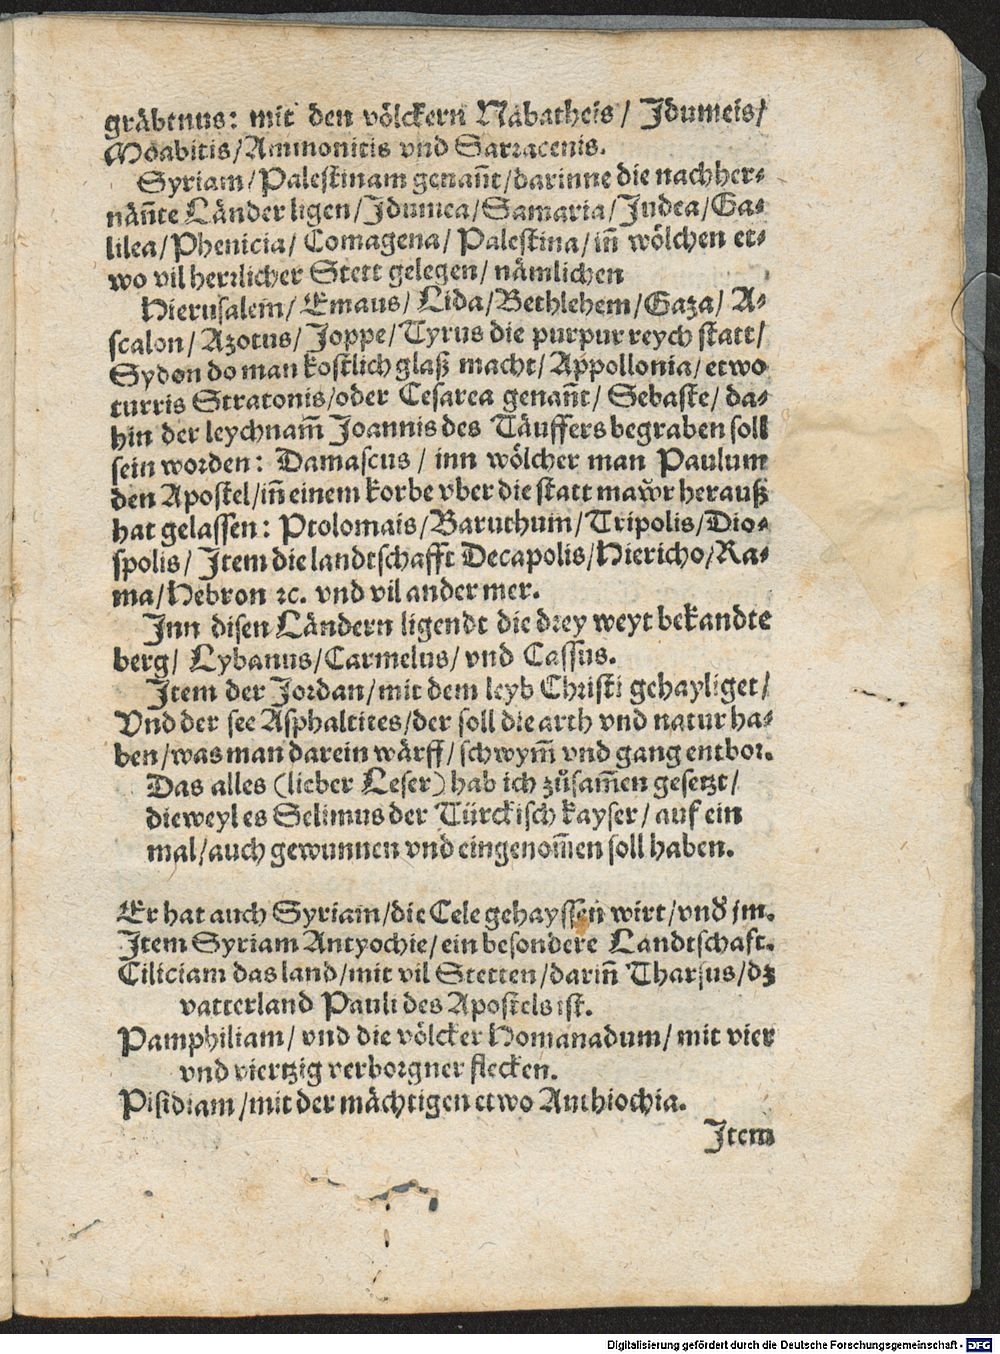 gräbtnus: mit den völckern Nabatheis/ Jdumeis/
Moabitis/Ammonitis vnd Sarracenis.
Syriam/Palestinam genañt/darinne die nachher-
näñte Länder ligen/Jdumea/Samaria/Judea/Ga-
lilea/Phenicia/ Comagena/ Palestina/iñ wölchen et-
wo vil herrlicher Stett gelegen/ nämlichen
Hierusalem/ Emaus/ Lida/Bethlehem/Gaza/ A-
scalon/ Azotus/ Joppe/Tyrus die purpur reych statt/
Sydon do man kostlich glaß macht/ Appollonia/ etwo
turris Stratonis/oder Cesarea genañt/ Sebaste/ da-
hin der leychnam̃ Joannis des Täuffers begraben soll
sein worden: Damascus/ inn wölcher man Paulum
den Apostel/iñ einem korbe vber die statt mawr herauß
hat gelassen: Ptolomais/Baruthum/Tripolis/Dio-
spolis/ Jtem die landtschafft Decapolis/Hiericho/Ra-
ma/Hebron ꝛc. vnd vil ander mer.
Jnn disen Ländern ligendt die drey weyt bekandte
berg/ Lybanus/Carmelus/ vnd Cassus.
Jtem der Jordan/mit dem leyb Christi gehayliget/
Vnd der see Asphaltites/der soll die arth vnd natur ha-
ben/was man darein wärff/schwym̃ vnd gang entbor.
Das alles (lieber Leser) hab ich zůsam̃en gesetzt/
dieweyl es Selimus der Türckisch kayser/ auf ein
mal/auch gewunnen vnd eingenom̃en soll haben.
Er hat auch Syriam/die Cele gehayssen wirt/vnd jm.
Jtem Syriam Antyochie/ein besondere Landtschaft.
Ciliciam das land/mit vil Stetten/dariñ Tharsus/dz
vatterland Pauli des Apostels ist.
Pamphiliam/ vnd die völcker Homanadum/ mit vier
vnd viertzig verborgner flecken.
Pisidiam/mit der mächtigen etwo Anthiochia.
Jtem
Digitalisierung gefördert durch die Deutsche Forschungsgemeinschaft - DFG